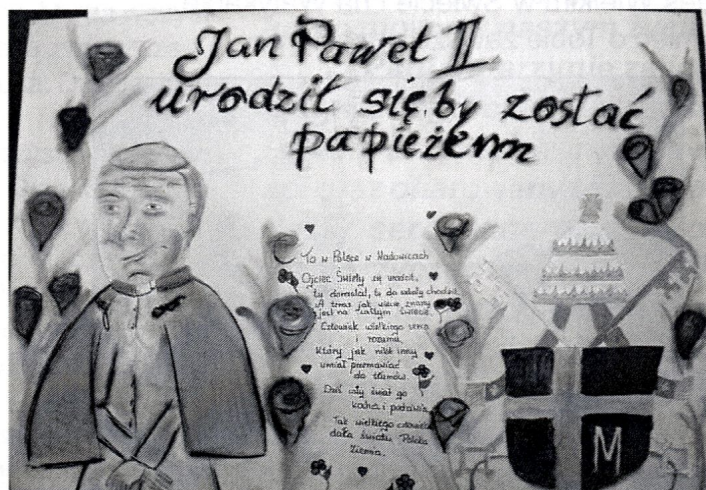 Jan Paweł II
urodził się, by zostać
papieżem
To w Polsce w Wadowicach
Ojciec Święty się urodził,
tu dorastał, tu do szkoły chodził.
A teraz jak wiecie znany
jest na całym świecie.
Człowiek wielkiego serca
i rozumu,
Który jak nikt inny
umiał przemawiać
do tłumów.
Dziś cały świat go
kocha i podziwia.
Tak wielkiego człowieka
dała światu Polska
Ziemia.
M